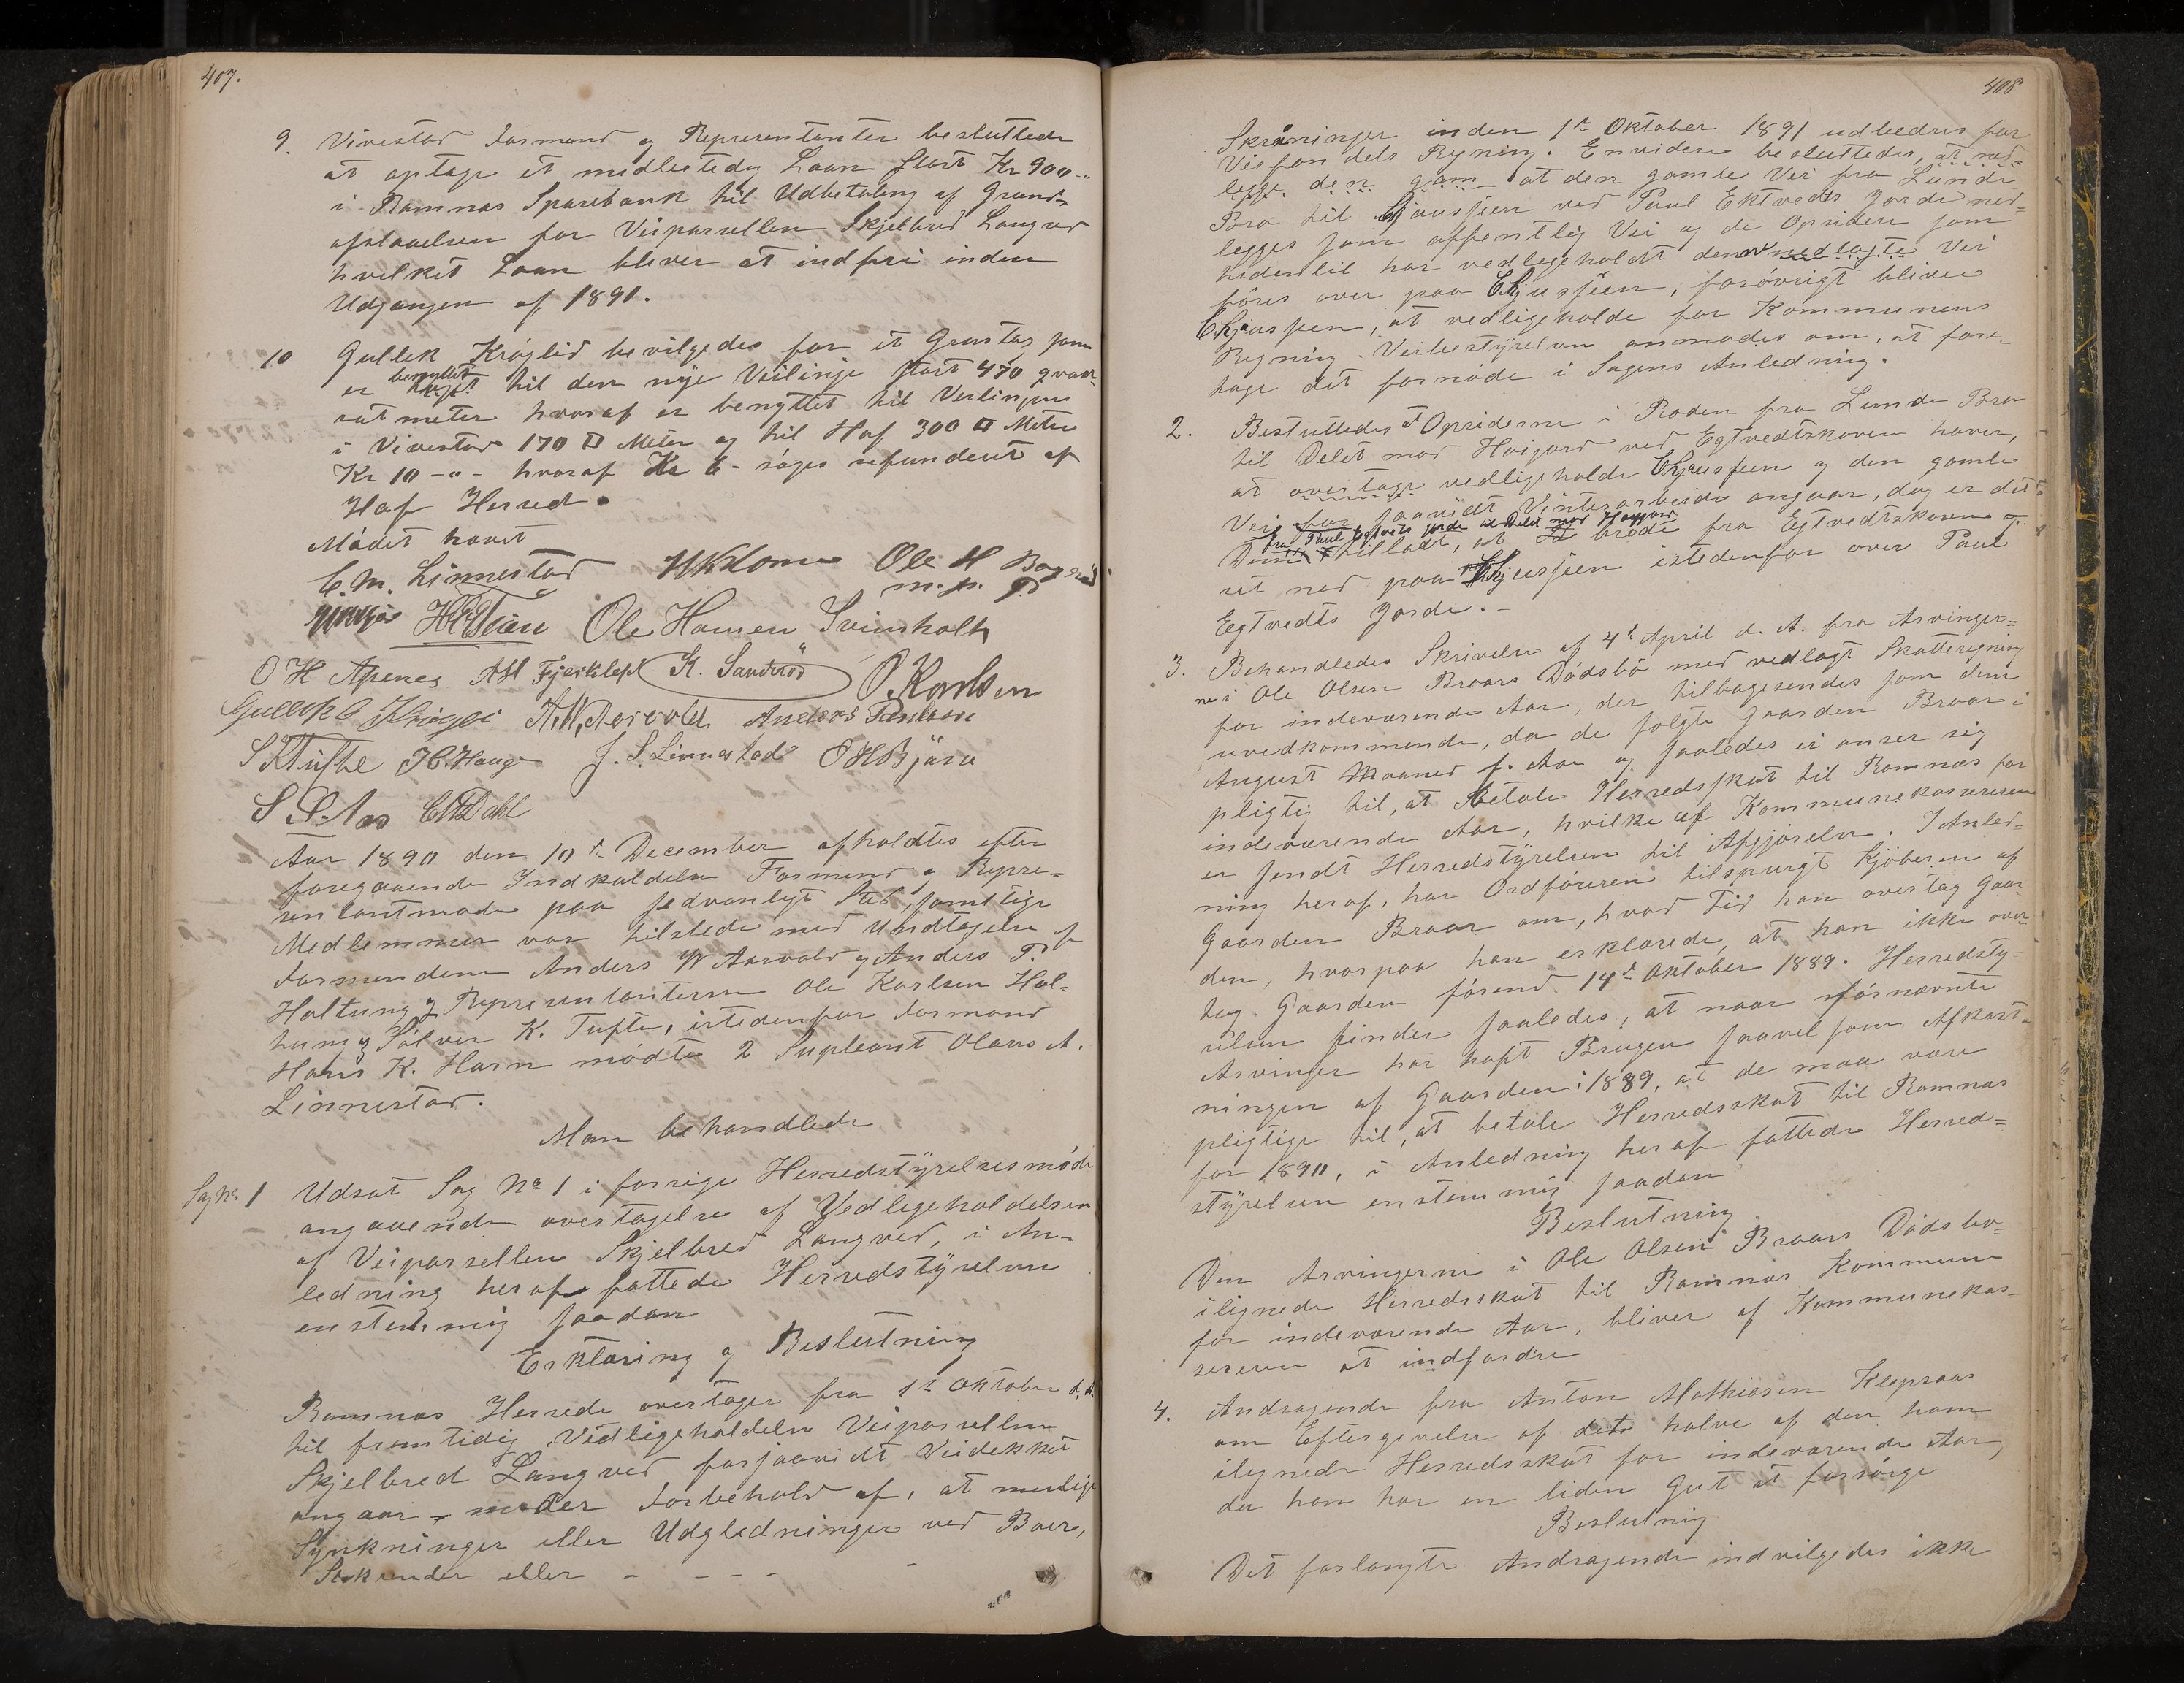 407.
9. Vivestad Formænd og Repræsentanter besluttede
at optage et midlertidig Laan stort Kr 900-"
i Ramnæs Sparebank til Udbetaling af Grund=
afstaaelsen for Veiparsellen Skjelbred Langved
hvilket Laan bliver at indfri inden
Udgangen af 1891.
10 Gullek Krøglid bevilgedes for et Grustag som
benyttet
er taget til den nye Veilinje stort 470 qvad-
ratmeter hvoraf er benyttet til Veilinjen
i Vivestad 170 □ Meter og til Hof 300 □ Meter
Kr 10 -"- hvoraf Kr 6- søges refunderet af
Hof Herred.
Mødet hævet
C. M. Linnestad Ole H Bag
m. p. P.
Ole Hansen Svinholt
O H Apenes K. Sandrød O. Karlsen
A. W. Aarvold Anders Paulsen
S K Tufte H. Haug J. S. Linnestad O H Bjære
S S. Aas C Dahl
Aar 1890 den 10de December afholdtes efter
foregaaende Indkaldelse Formænd og Repræ=
sentantmøde paa sedvanligt Sted, samtlige
Medlemmer var tilstede med Undtagelse af
Formændene Anders W Aarvold og Anders P.
Haltung og Repræsentanterne Ole Karlsen Hal=
tung og Sølver K. Tufte, istedenfor Formand
Hans K. Horn mødte 2 Supleant Olavs A.
Linnestad.
Man behandlede
Sag No 1 Udsat Sag No 1 i forrige Herredstyrelsesmøde
angaaende overtagelse af Vedligeholdelsen
af Veiparsellen Skjelbred Langved, i An-
ledning heraf fattede Herredstyrelsen
enstemmig saadan
Erklæring og Beslutning
Ramnæs Herrede overtager fra 1ste Oktober d. A.
til fremtidig Vedligeholdelse Veiparsellen
Skjelbred Langved, forsaavidt Veidekket
angaar, under Forbehold af, at mulige
Synkninger eller Udglidninger ved Broer,
Stikrender eller - - - - -
408
Skråninger inden 1ste Oktober 1891 udbedres for
Veifondets Regning. Envidere besluttedes, at ned-
legge den gam at den gamle Vei fra Lunde
Bro til Chjausseen ved Paul Ektvedts Jorde ned=
legges som offentlig Vei og de Opsidere som
hidentil har vedligeholdt denne nedlagte Vei
føres over paa Chjausseen, forøvrigt bliver
Chjausseen, at vedligeholde for Kommunens
Regning. Veibestyrelsen anmodes om, at fore-
tage det fornødne i Sagens Anledning.
2. Besluttedes Opsiderne i Roden fra Lunde Bro
til Delet mod Hvigard ved Egtvedtskoven haver,
at overtage vedligeholde Chjausseen og den gamle
Vei for saavidt Vinterarbeide angaar, dog er det
fra Paul Egtvedts jorde til Delet mod
Dem tilladt, at brøde fra Egtvedtskoven og
ret ned paa Chjausseen istedenfor over Paul
Egtvedts Jorde. -
3. Behandledes Skrivelse af 4de April d. A. fra Arvinger=
ne i Ole Olsen Braars Dødsbo med vedlagt Skatteregning
for indeværende Aar, der tilbagesendes som dem
uvedkommende, da de solgte Gaarden Braar i
August Maaned f. Aar og saaledes ei anser sig
pligtig til, at betale Herredsskat til Ramnæs for
indeværende Aar, hvilke af Kommunekassereren
er sendt Herredstyrelsen til Afgjørelse. I Anled-
ning heraf, har Ordføreren tilspurgt Kjøberen af
Gaarden Braar om, hvad Tid han overtog Gaar
den, hvorpaa han erklærede, at han ikke over
tog Gaarden førend 14de Oktober 1889. Herredsty-
relsen finder saaledes, at naarførnævnte
Arvinger har haft Brugen saavel som Afkast-
ningen af Gaarden i 1889, at de maa være
pligtige til, at betale Herredsskat til Ramnæs
for 1890, i Anledning heraf fattede Herred=
styrelsen enstemmig saadan
Beslutning
Den Arvingerne i Ole Olsen Braars Dødsbo-
ilignede Herredsskat til Ramnæs Kommune
for indeværende Aar, bliver af Kommunekas-
sereren at indfordre
4. Andragende fra Anton Mathisen Klopraas
om Eftergivelse af det halve af den ham
ilignede Herredsskat for indeværende Aar,
da han har en liden Gut at forsørge
Beslutning
Det forlangte Andragende indvilgedes ikke